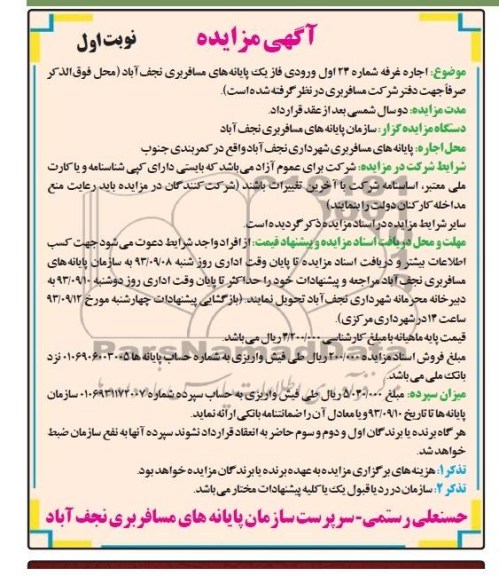 آگهی مزایده
نوبت اول
موضوع: اجاره غرفه شماره ۲۴ اول ورودی فاز یک پایانه های مسافربری نجف آباد (محل فوق الذکر
صرفاً جهت دفتر شرکت مسافربری در نظر گرفته شده است).
مدت مزایده: دو سال شمسی بعد از عقد قرارداد.
دستگاه مزایده گزار: سازمان پایانه های مسافربری نجف آباد
محل اجاره: پایانه های مسافربری شهرداری نجف آباد واقع در کمربندی جنوب
شرایط شرکت در مزایده: شرکت برای عموم آزاد می باشد که بایستی دارای کپی شناسنامه و یا کارت
ملی معتبر، اساسنامه شرکت با آخرین تغییرات باشند (شرکت کنندگان در مزایده باید رعایت منع
مداخله کارکنان دولت را بنمایند)
سایر شرایط مزایده در اسناد مزایده ذکر گردیده است.
مهلت و محل دریافت اسناد مزایده و پیشنهاد قیمت: از افراد واجد شرایط دعوت می شود جهت کسب
اطلاعات بیشتر و دریافت اسناد مزایده تا پایان وقت اداری روز شنبه ۹۳/۰۹/۰۸ به سازمان پایانه های
مسافربری نجف آباد مراجعه و پیشنهادات خود را حداکثر تا پایان وقت اداری روز دوشنبه ۹۳/۰۹/۱۰ به
دبیرخانه محرمانه شهرداری نجف آباد تحویل نمایند. (بازگشایی پیشنهادات چهارشنبه مورخ ۹۳/۰۹/۱۲
ساعت ۱۴ در شهرداری مرکزی).
قیمت پایه ماهیانه با مبلغ کارشناسی ۴/۲۰۰/۰۰۰ ریال می باشد.
مبلغ فروش اسناد مزایده ۲۰۰/۰۰۰ ریال طی فیش واریزی به شماره حساب پایانه ها ۰۱۰۶۹۰۶۰۰۳۰۰۵ نزد
بانک ملی می باشد.
میزان سپرده: مبلغ ۵/۰۴۰/۰۰۰ ریال طی فیش واریزی به حساب سپرده شماره ۰۱۰۶۹۳۱۱۷۲۰۰۷ سازمان
پایانه ها تا تاریخ ۹۳/۰۹/۱۰ و یا معادل آن را ضمانتنامه بانکی ارائه نماید.
هر گاه برنده یا برندگان اول و دوم و سوم حاضر به انعقاد قرارداد نشوند سپرده آنها به نفع سازمان ضبط
خواهد شد.
تذکر ۱: هزینه های برگزاری مزایده به عهده برنده یا برندگان مزایده خواهد بود.
تذکر ۲: سازمان در رد یا قبول یک یا کلیه پیشنهادات مختار می باشد.
حسنعلی رستمی- سرپرست سازمان پایانه های مسافربری نجف آباد
ParsNamadData